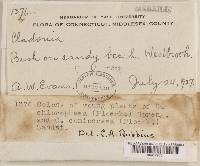 1276.
HERBARIUM OF YALE UNIVERSITY
FLORA OF CONNECTICUT, MIDDLESEX COUNTY
Cladonia
Bush on sandy beach, Westbrook,
A. W. Evans, July 24, 1927.
1276 Colony of young plants of Cl.
chlorophaea (Floerke) Spreng.
and C.
Det. C. A. Robbins